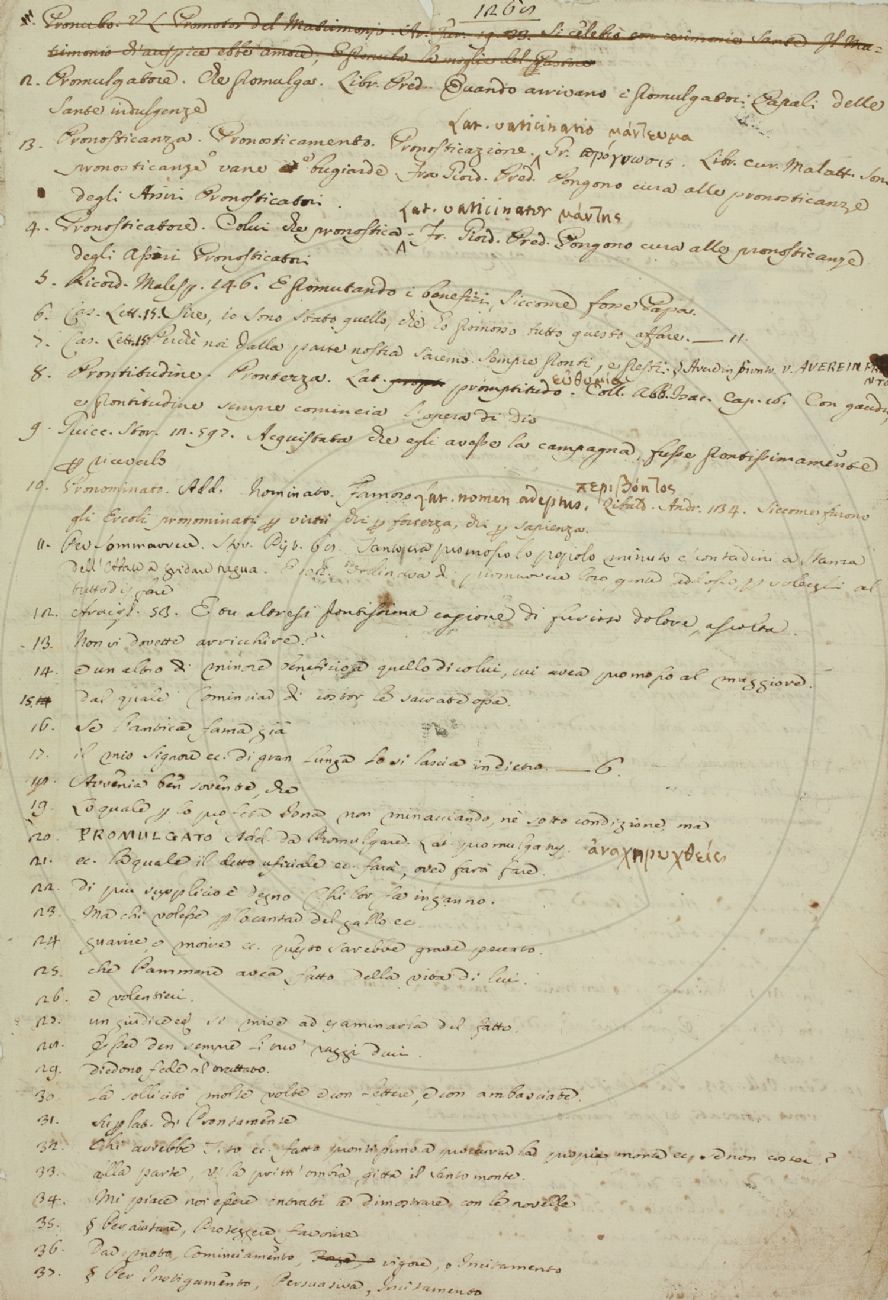 1269
1. Pronubo. V. L. Promotor del Matrimonio. Si celebrò con cerimonie sante Il Ma=
timonio
2. Promulgatore. Che promulga. Libr. Pred. Quando arrivano i promulgatori Papali delle
sante indulgenze
Lat. vaticinatio μάντευμα
13. Pronosticanza. Pronosticamento. Pronosticazione. Gr. πρόγνωσις. Libr. cur. Malatt. Son
pronosticanze vane o bugiarde Fra Giord. Pred. Pongono cura alle pronosticanze
degli Assiri Pronosticatori.
Lat. vaticinator μάντης
4. Pronosticatore. Colui che pronostica. Fr. Giord. Pred. Pongono cura alle pronosticanze
degli Assiri Pronosticatori
5. Ricord. Malesp. 146. E promutando i benefizi, siccome fosse Papa.
6. Cas. Lett. 15. Sire, io sono stato quello, che ho promosso tutto questo affare. — 11.
7. Cas. Lett. 15 Perchè noi dalla parte nostra saremo sempre pronti, e presti. § Aver in pronto. V. AVERE IN PRO
NTO
8. Prontitudine. Prontezza. Lat. promptitudo. εὐθυμία. Coll. Abb. Isac. Cap. 26. Con gaudio,
e prontitudine sempre comincia l'opera di Dio
9. Guicc. Stor. 12. 592. Acquistata che egli avesse la campagna, fusse prontissimamente
per riceverlo
10. Pronominato. Add. Nominato. Famoso Lat. nomen adeptus. περιβόητος Andr. 134. Siccome furono
gli Ercoli pronominati per virtù chi per fortezza, chi per sapienza.
11. Per Sommuovere. Stor. Pist. 69. promosso lo popolo minuto e' contadini a stanza
promuovere loro gente
12. 53. E tu altresì prontissima cagione di furioso dolore, ascolta.
13. Non vi dovette arricchire?
14. e un altro di minore beneficio a quello di colui, cui avea promosso al maggiore.
15. dal quale Cominciar di costor le sacrate ossa.
16. Se l'antica fama già
17. il mio Signore ec. di gran lunga lo si lascia indietro. — 6.
18. Avvenia ben sovente, che
19. Lo quale per lo profeta dona non minacciando, nè sotto condizione, ma
20. PROMULGATO Add. da Promulgare. Lat. promulgatus. ἀνακηρυχθείς
21. ec. la quale il detto ufiziale ec. farà, over farà fare.
22. Di più supplicio è degno Chi lor fa inganno.
23. Ma chi volesse per lo cantar del gallo ec.
24. guarire, o morire ec. questo sarebbe grave peccato.
25. che l'ammenda avea fatto della vita di lui.
26. e volentieri.
27. un giudice ec. si mise ad esaminarla del fatto.
28. sempre li tuo' raggi duci.
29. diedono fede al trattato.
30. La sollicitò molte volte e con lettere, e con ambasciate.
31. Superlat. di Prontamente
32. Chi avrebbe Tito ec. fatto prontissimo a procurar la propria morte ec., se non costei?
33. alla parte, U' la prim' ombra gitta il santo monte.
34. Mi piace noi essere entrati a dimostrare con le novelle
35. § Per aiutare, Proteggere, favorire
36. Dar mossa, Cominciamento, vigore, o Incitamento
37. § Per Instigamento, Persuasiva, Incitamento